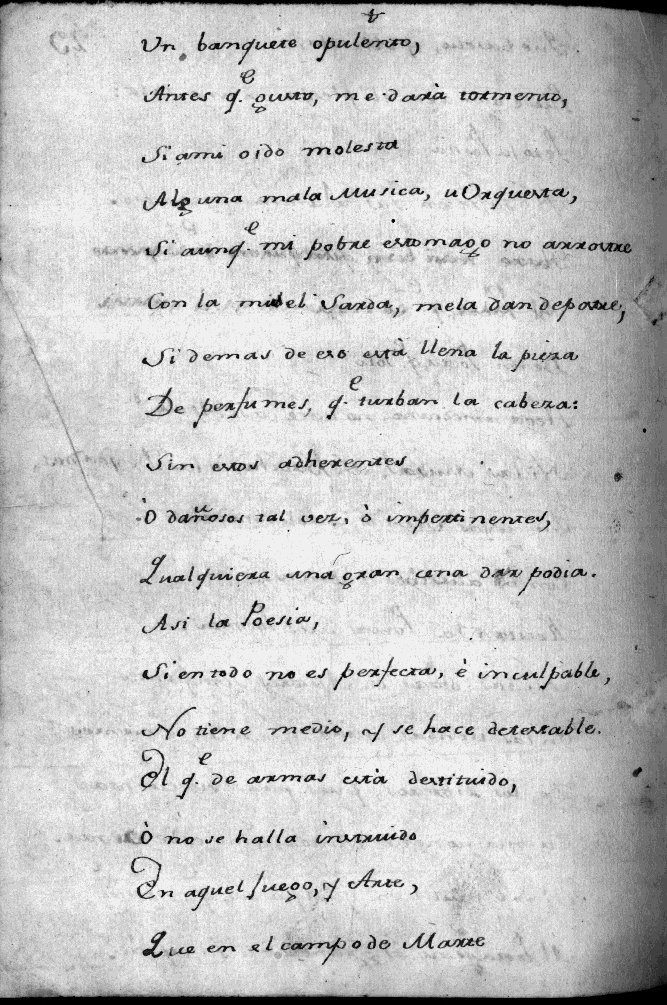 Un banquete opulento,
Antes q.e gusto, me darà tormento,
Si ami oido molesta
Alguna mala Musica, u Orquesta,
Si aunq.e mi pobre estomago no arrostre
Con la miel Sarda, mela dan depostre,
Si demas de eso està llena la pieza
De perfumes, q.e turban la cabeza:
Sin estos adherentes
Ò dañosos tal vez, ò impertinentes,
Qualquiera una gran cena dar podia.
Asi la Poesia,
Si entodo no es perfecta, è inculpable,
No tiene medio, y se hace detestable.
El q.e de armas està destituido,
Ò no se halla instruido
En aquel fuego, y Arte,
Que en el campo de Marte